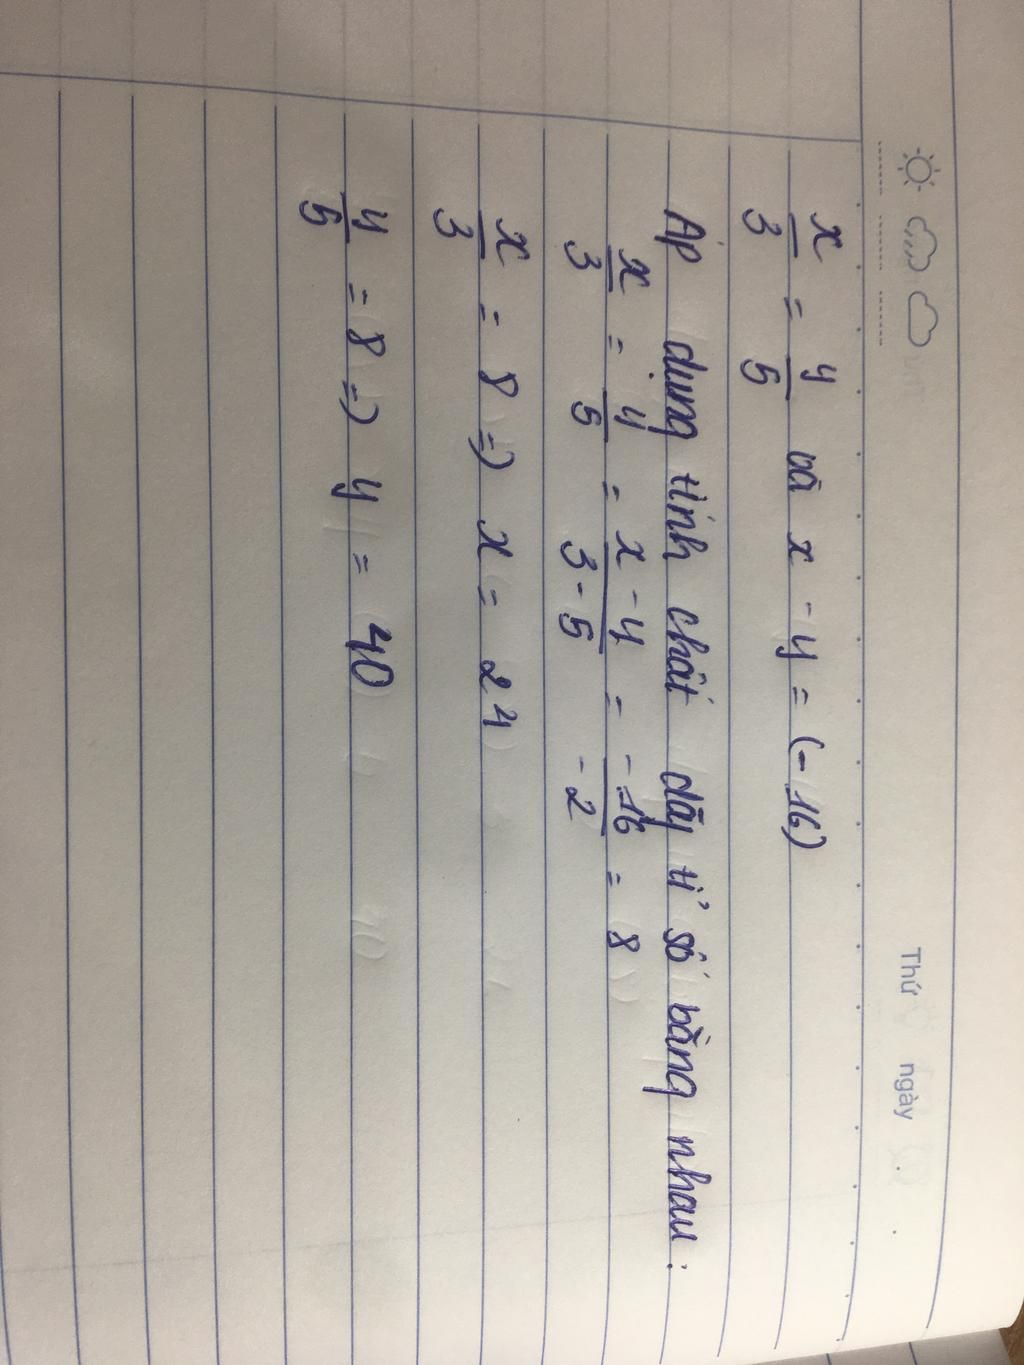 Thứ ngày
x/3 = y/5 và x - y = (-16)
Áp dụng tính chất dãy tỉ số bằng nhau:
x/3 = y/5 = x - y/3 - 5 = -16/-2 = 8
x/3 = 8 => x = 24
y/5 = 8 => y = 40